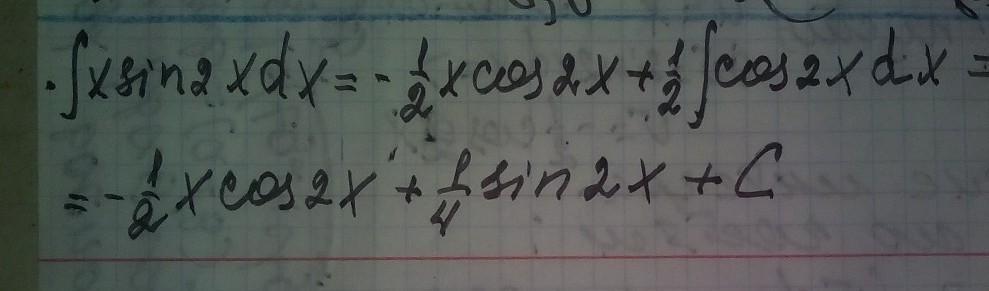 ∫x sin2xdx = -1/2 x cos2x + 1/2 ∫cos2xdx =
= -1/2 x cos2x + 1/4 sin2x + C